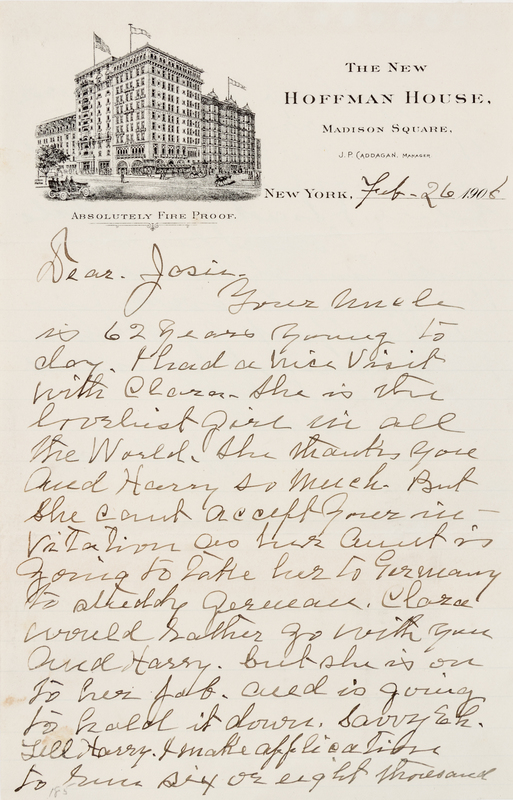 THE NEW
HOFFMAN HOUSE,
MADISON SQUARE,
J. P. CADDAGAN. MANAGER
NEW YORK, Feb- 26 1908
ABSOLUTELY FIRE PROOF.
Dear. Josie.
Your Uncle
is 62 Years Young to
day. I had a Nice Visit
with Clara. She is the
loveliest girl in all
the World. She thanks you
And Harry so Much. But
She cant accept Your in-
vitation as her Aunt is
going to take her to Germany
to studdy German. Clara
would rather go with you
And Harry. but she is on
to her Job. and is going
to hold it down. Savvy Eh.
Tell Harry. I make application
to run six or eight thousand